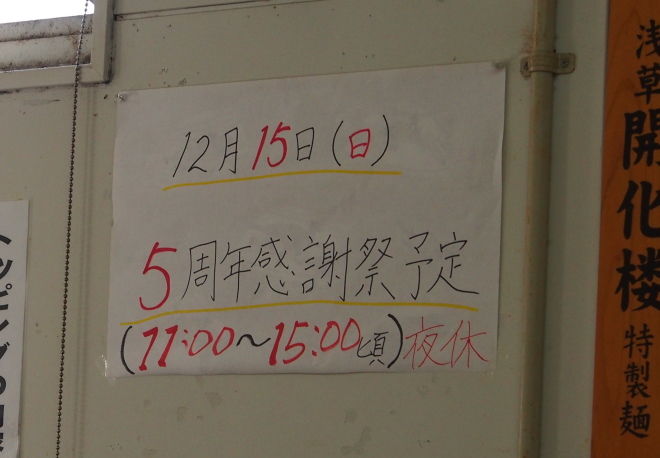 12月15日(日)
5周年感謝祭予定
(11:00〜15:00頃)夜休
浅草開化楼特製麺
トッピング